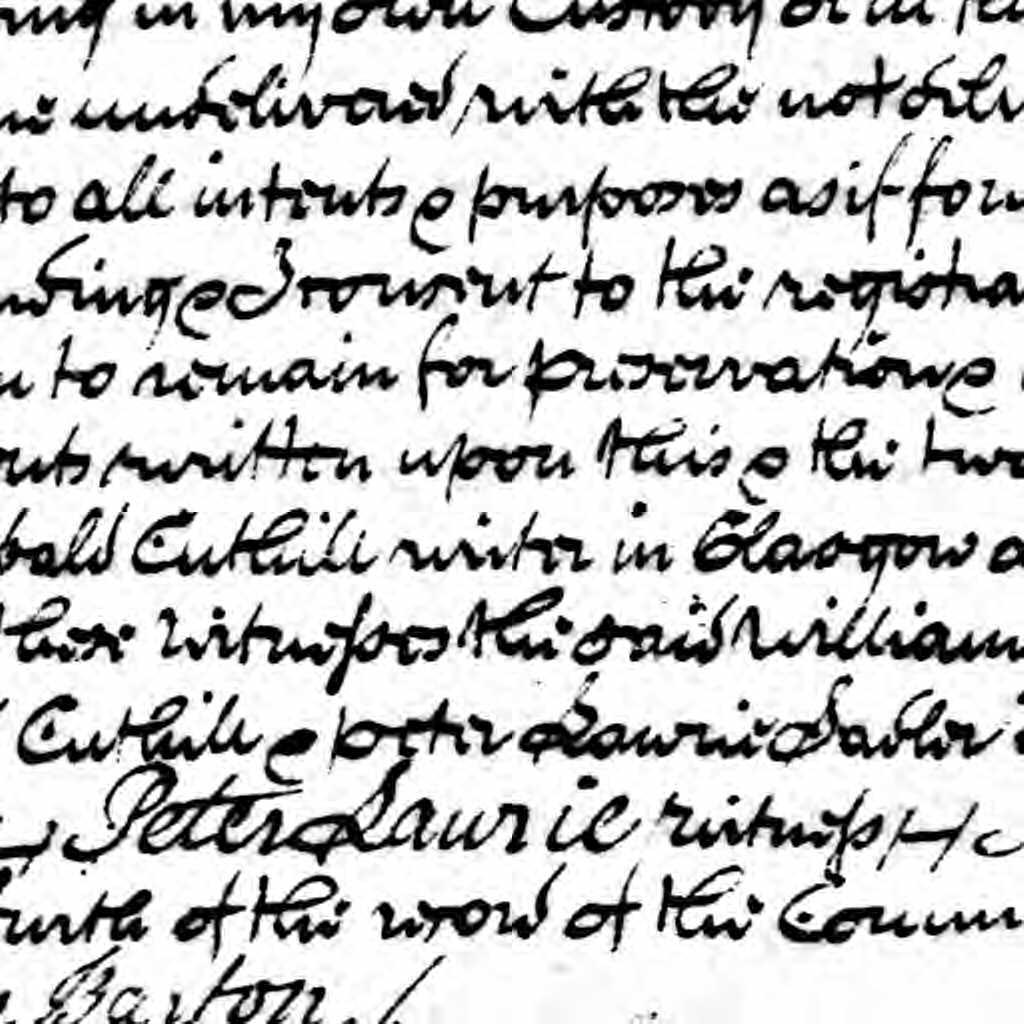 ing in my own Custody or in
undelivered with the not deliv
to all intents & purposes as if for
nding & I consent to the registra
to remain for preservation &
nts written upon this & the two
bald Cuthill writer in Glasgow a
these witnesses the said William
Cuthill & peter Laurie Sadler
Peter Laurie witness
fourth of the word of the Comm
Barton